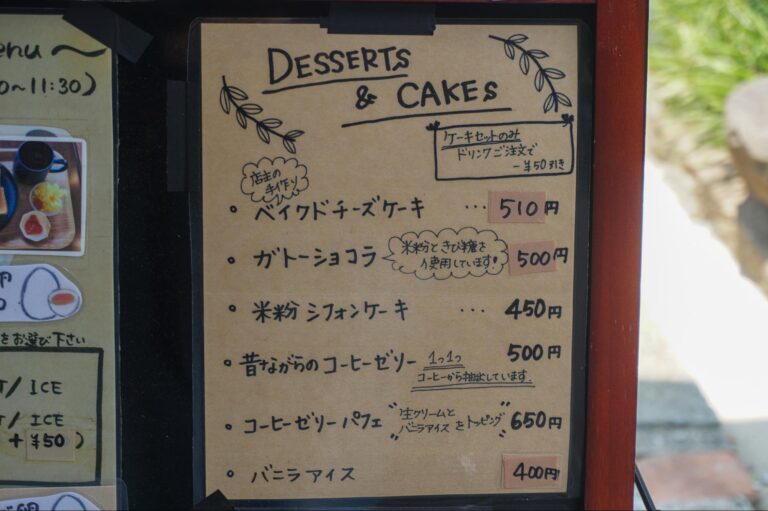 enu
0~11:30)
をお選び下さい
T/ICE
T/ICE
+¥50)
DESSERTS
& CAKES
ケーキセットのみ
ドリンクご注文で
-¥50引き
店主の
手作り
・ベイクドチーズケーキ … 510円
・ガトーショコラ 米粉ときび糖を
使用しています! 500円
・米粉シフォンケーキ … 450円
・昔ながらのコーヒーゼリー 500円
1つ1つ
コーヒーから抽出しています。
・コーヒーゼリーパフェ "生クリームと
バニラアイスをトッピング" 650円
・バニラアイス 400円